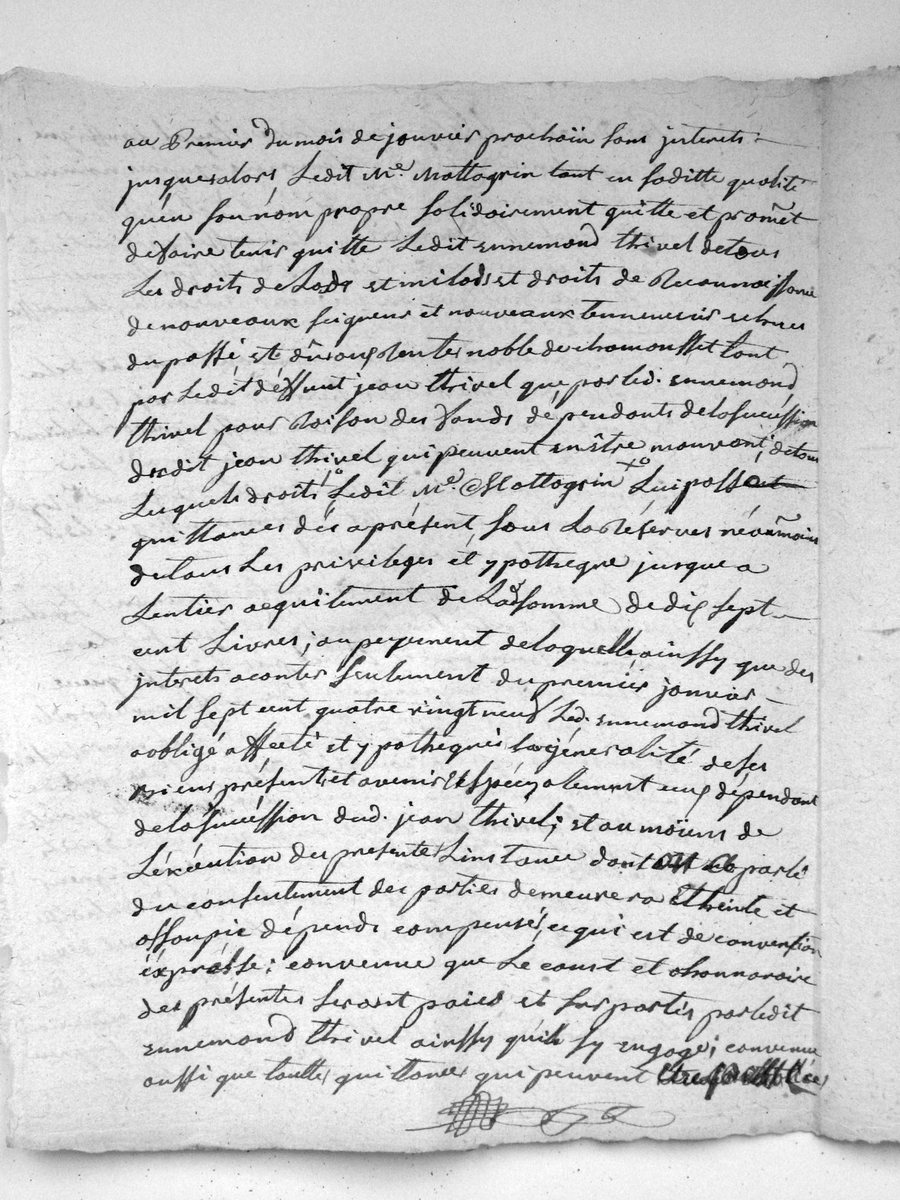 au Premier du mois de janvier prochain sans interets
jusques alors, Ledit Me. Mattagrin tant en saditte qualité
qu'en son nom propre solidairement quitte et promet
de faire tenir quitte Ledit Ennemond thivel de tous
Les droits de Lods et milods et droits de Reconnoissance
de nouveaux seigneurs et nouveaux tennementiers echues
du passé et dûs aux rentes noble de chamousset tant
par Ledit déffunt jean thivel que par led. Ennemond
thivel pour Raison des fonds dépendants de la sucession
dudit jean thivel qui peuvent en être mouvant; de tous
Lesquels droits Ledit Me. Mattagrin Lui passe
quittances dès a présent, sous La Réserves néanmoins
de tous Les privileges et ypotheque jusque a
Lentier acquitement de Lad. somme de dix sept
cent Livres; au payement de laquelle ainssy que des
interets a conter seulement du premier janvier
mil sept cent quatre vingt neuf Led. Ennemond thivel
a obligé affecté et ypotheques la généralité de ses
biens présents et avenir et spécyalement ceux dépendant
de la sucéssion dud. jean thivel; et au moiens de
L'éxécution des presentes Linstance dont on a parlé
du consentement des parties demeurera Etheinte et
assoupie dépends compensés, ce qui est de convention
éxprésse; convenue que Le coust et ohonnoraire
des présentes seront paiés et supportés par ledit
Ennemond thivel ainssy quil sy engage; convenue
aussi que touttes quittances qui peuvent